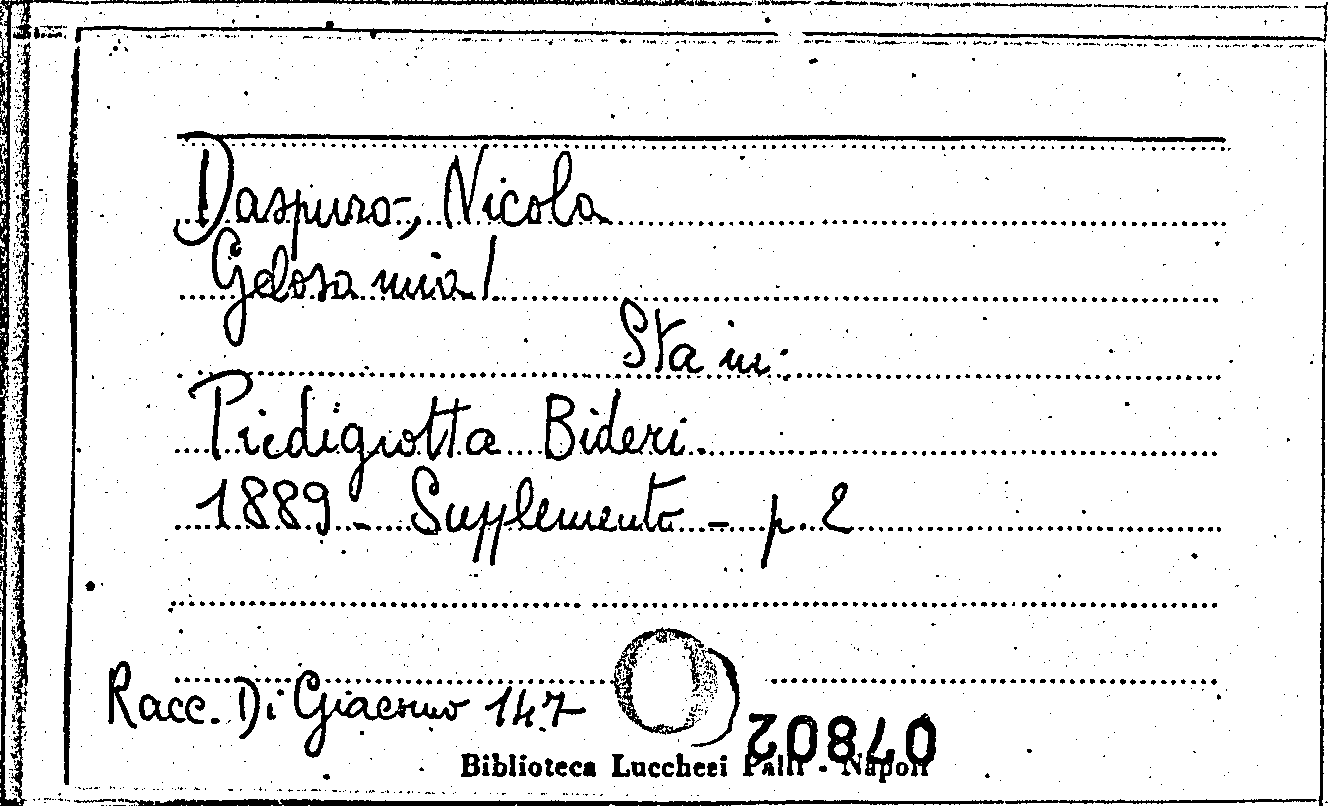 Daspuro, Nicola
Gelosa mia!
Sta in:
Piedigrotta Bideri.
1889 - Supplemento - p. 2
Racc. Di Giacomo 147
Biblioteca Lucchesi Palli - Napoli